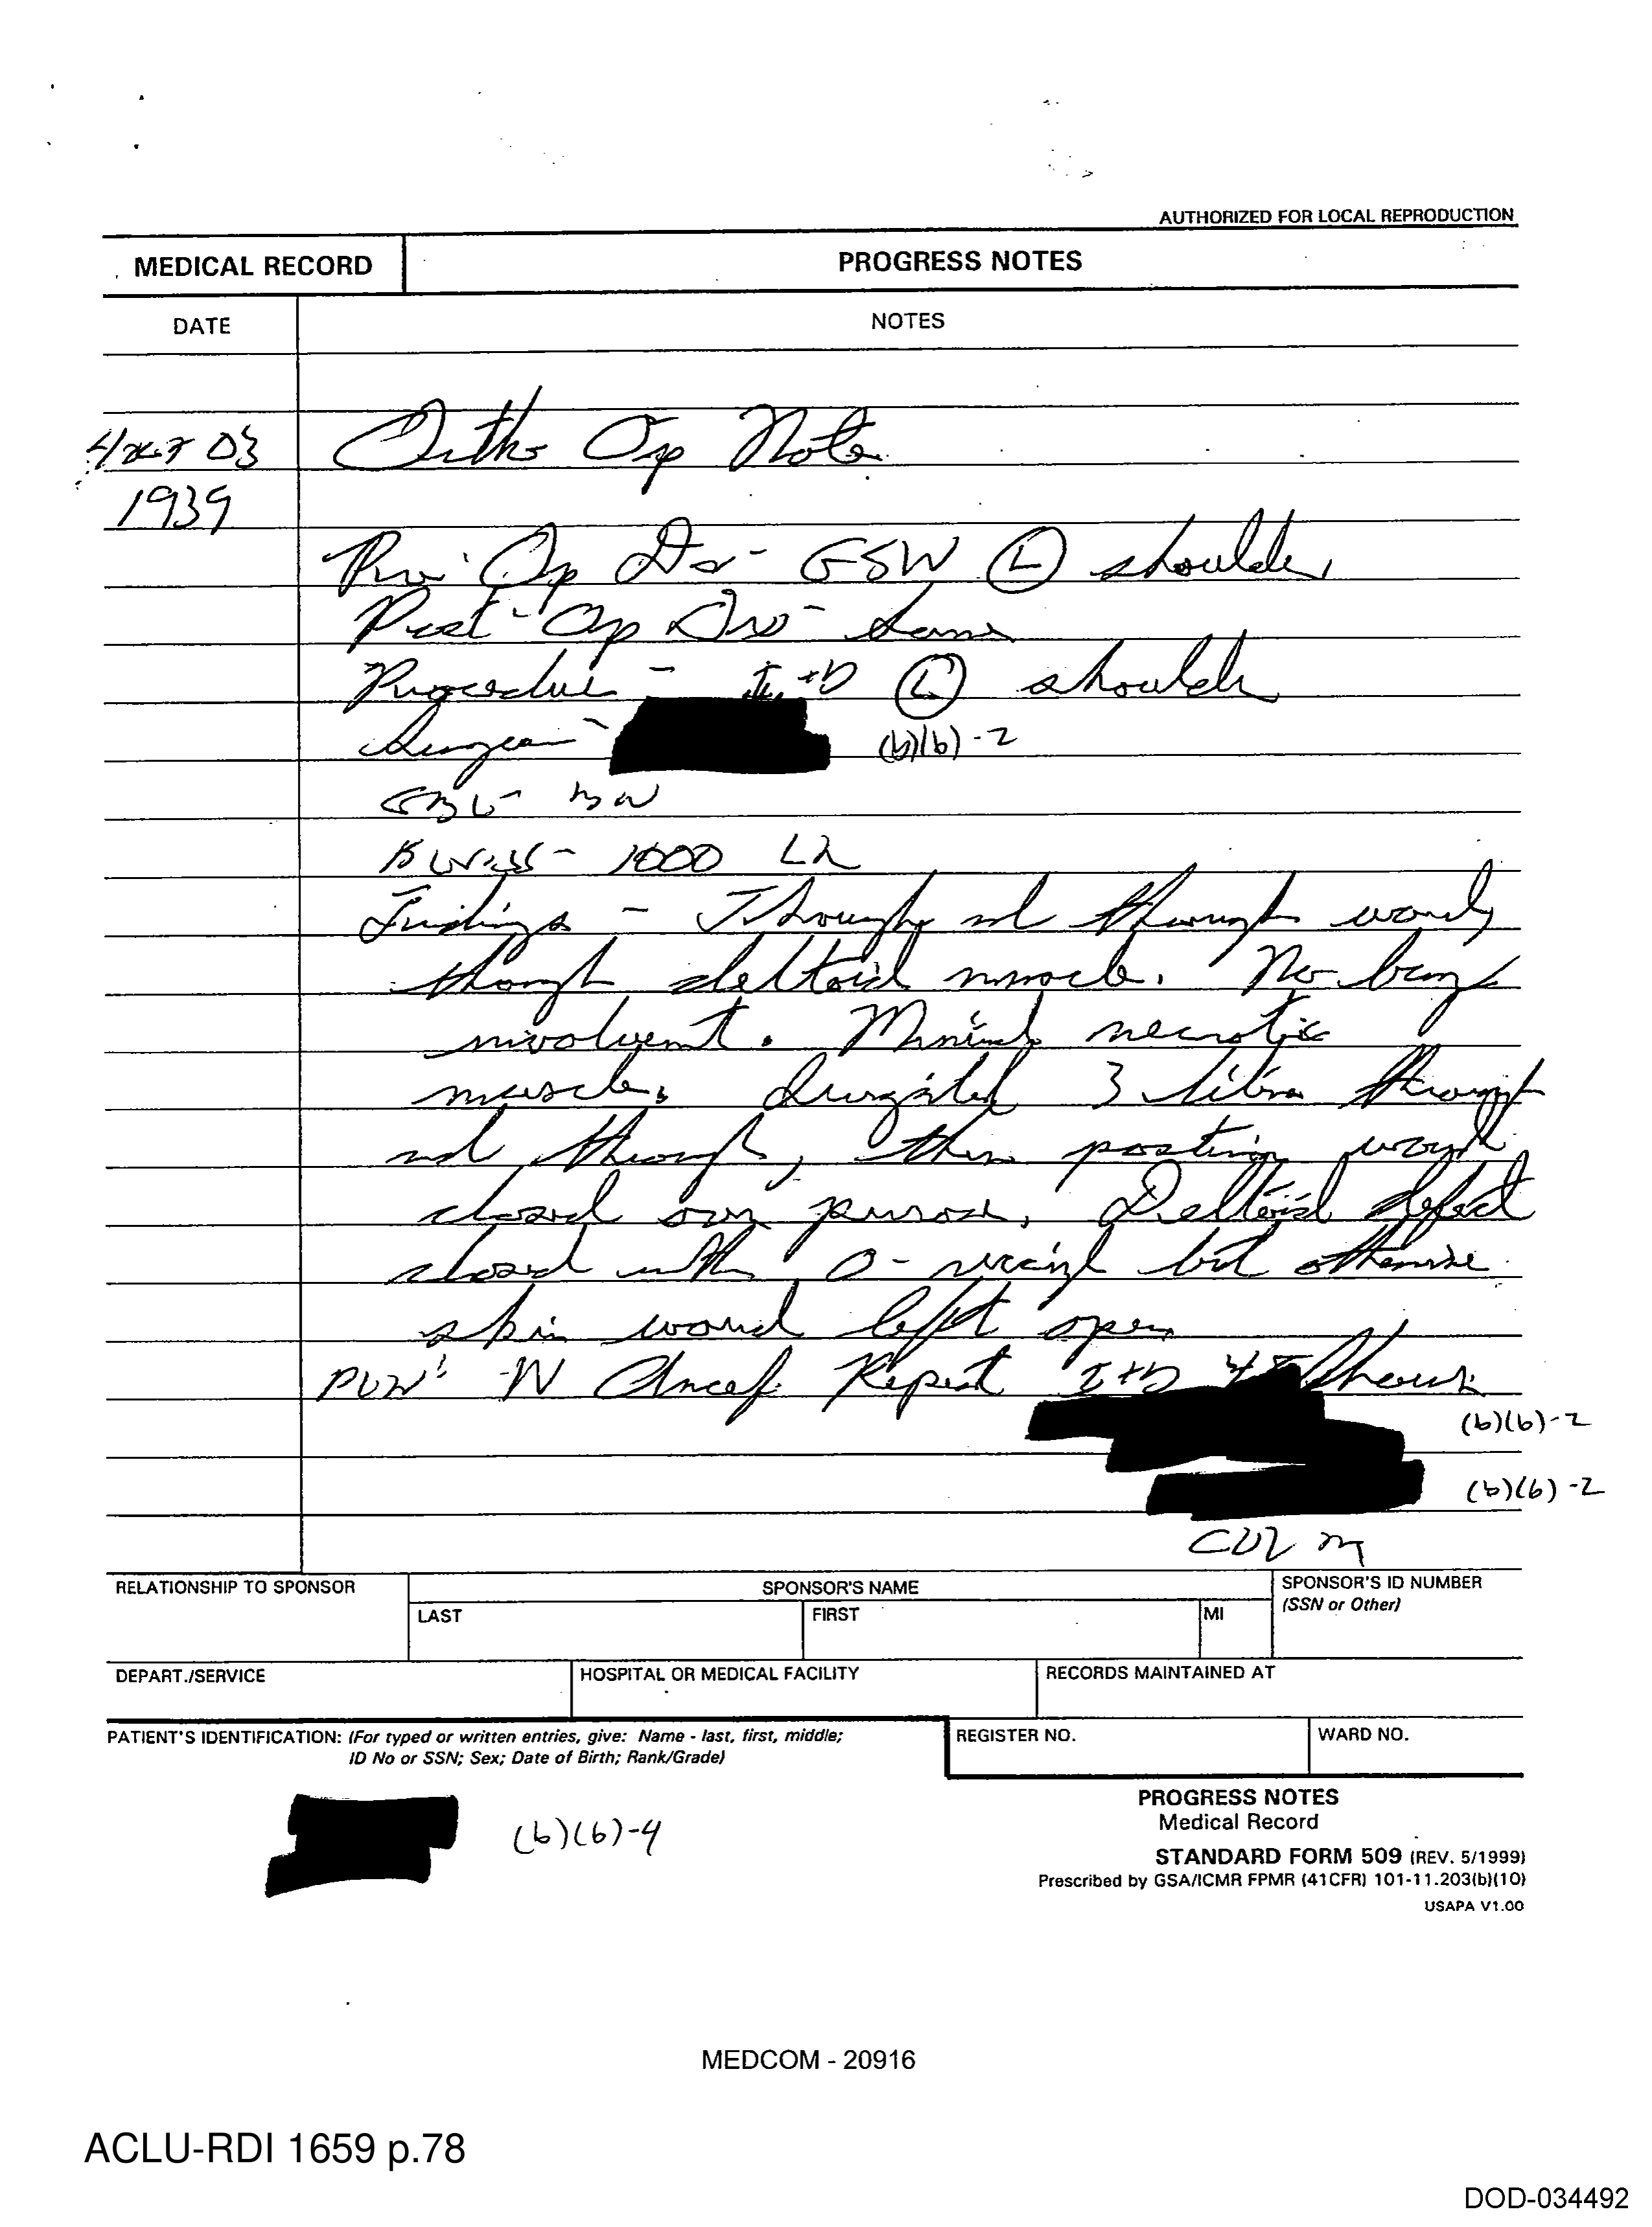 AUTHORIZED FOR LOCAL REPRODUCTION
MEDICAL RECORD
PROGRESS NOTES
DATE
NOTES
03 Ortho Op Note
1939
Pre Op Dx - GSW (L) shoulder
Post-Op Dx - Same
Procedure - I+D (L) shoulder
Surgeon - (b)(6)-2
EBL -
1000 LR
Findings - Through and through wound
through deltoid muscle. No bony
involvement. Minimal necrotic
muscle. Irrigated 3 liters through
and through, then posterior wound
closed over penrose. Deltoid defect
closed with 0-vicryl but otherwise
skin wound left open
Ancef. Repeat I+D 48 hours
(b)(6)-2
(b)(6)-2
COL
RELATIONSHIP TO SPONSOR
SPONSOR'S NAME
SPONSOR'S ID NUMBER
(SSN or Other)
LAST
FIRST
MI
DEPART./SERVICE
HOSPITAL OR MEDICAL FACILITY
RECORDS MAINTAINED AT
PATIENT'S IDENTIFICATION: (For typed or written entries, give: Name - last, first, middle;
ID No or SSN; Sex; Date of Birth; Rank/Grade)
REGISTER NO.
WARD NO.
(b)(6)-4
PROGRESS NOTES
Medical Record
STANDARD FORM 509 (REV. 5/1999)
Prescribed by GSA/ICMR FPMR (41CFR) 101-11.203(b)(10)
USAPA V1.00
MEDCOM - 20916
ACLU-RDI 1659 p.78
DOD-034492